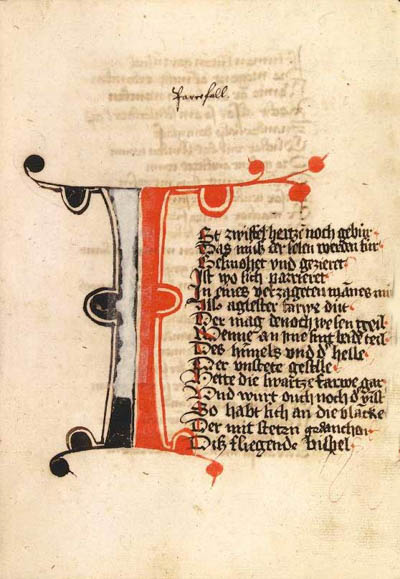 Parcifall
ISt zwifel hertze noch gebur
Das muß der selen werden sur
Gesmohet vnd gezieret
Ist wo sich parrieret
In eines verzageten mānes
Als aglester farwe dut
Der mag denoch wesen geil
Wenne an ime sint beide teil
Des himels vnd d' helle
Der vnstete geselle
Hette die swartze farwe gar
Vnd wurt ouch noch d'
So habt sich an die blācke
Der mit steten
Diß fliegende bishel